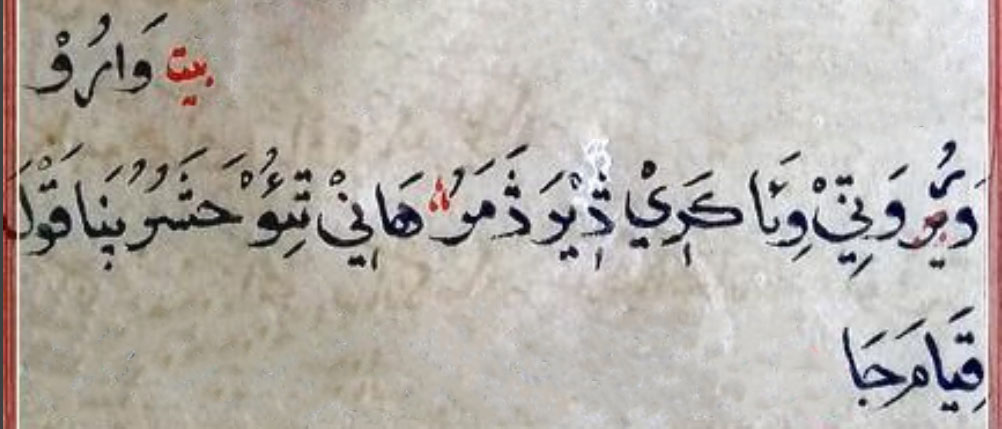 بيت وَارُوْ
وِيَا كَرِيْ ڎِيْرَ ڎَمَرُ هَانِيْ تِنِئُوْ حَشَرُ بِنَا قَوْلَ
قِيَامَ جَا